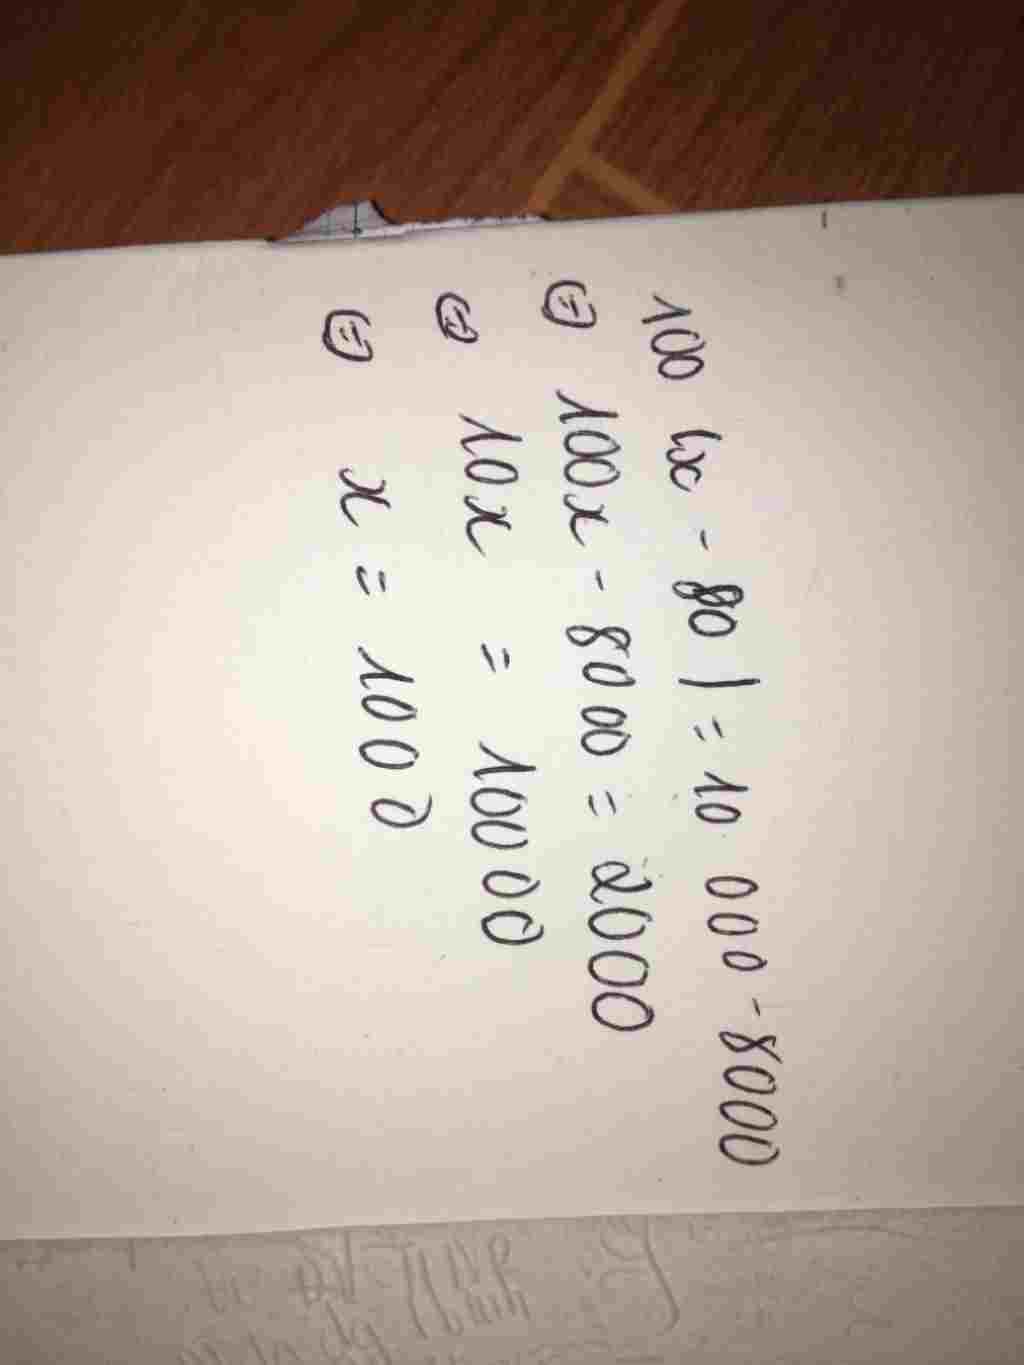 100 (x - 80) = 10 000 - 8000
⇔ 100x - 8000 = 2000
⇔ 10x = 10000
⇔ x = 1000